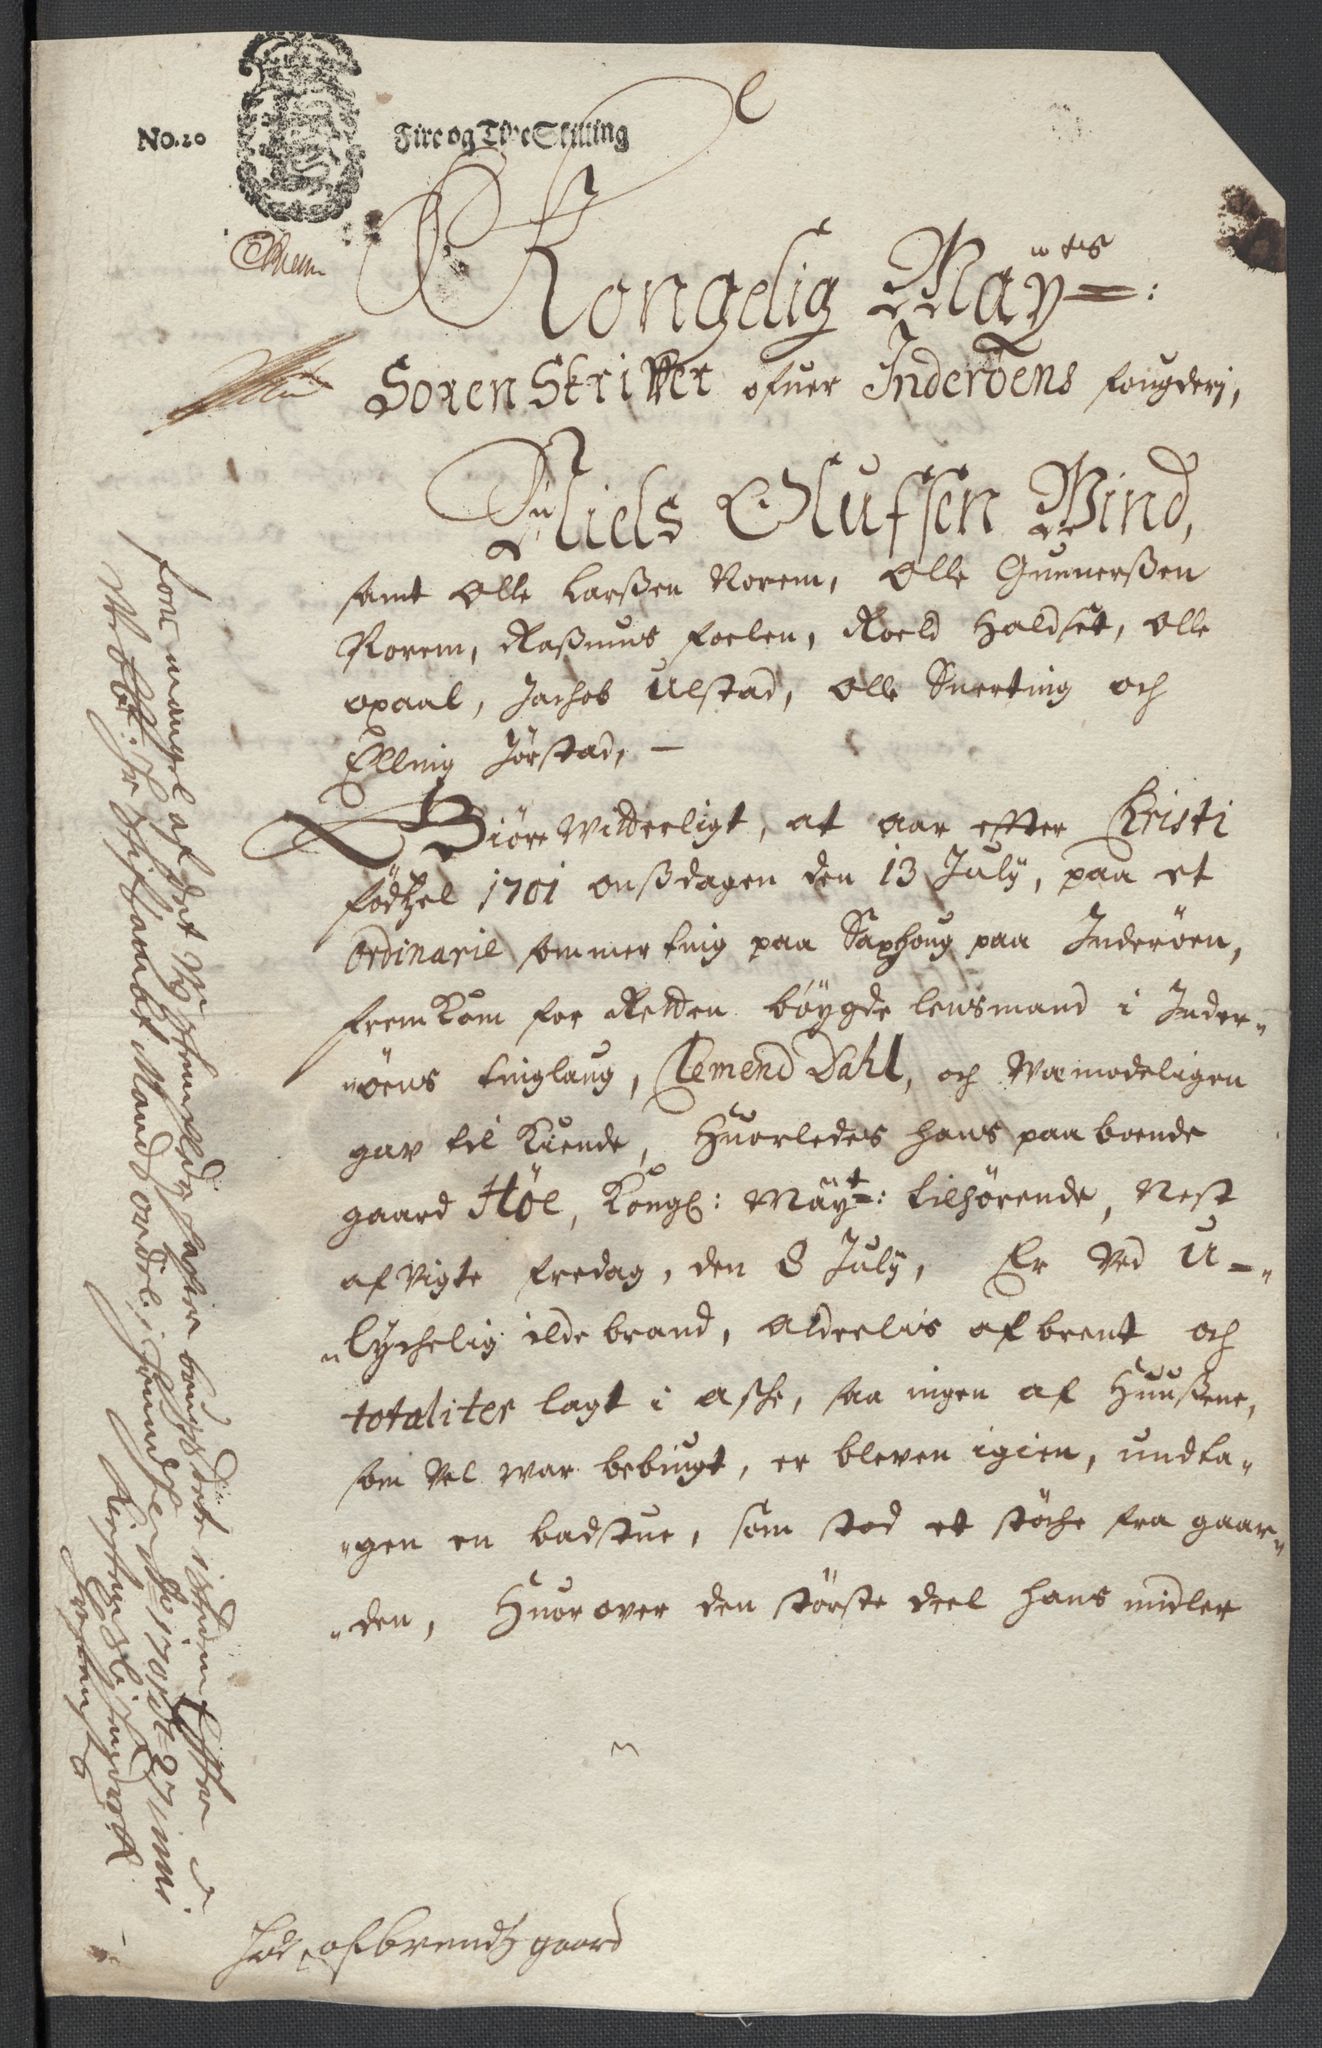 No. 20
Fire og Tive Skilling
Kongelig Maytes:
Soren Skriffer ofuer Inderöens fougderj,
Niels Olufsen Wind,
samt Olle Larßen Korem, Olle Gunnerßen
Korem, Raßmus Foelen, Roeld Haldset, Olle
opaal, Jachob Ulstad, Olle Snerting och
Elling Jörstad, —
Giöre Witterligt, at aar effter Christi
födtzel 1701 onßdagen den 13 July, paa et
ordinarie sommer ting paa Saxhoug paa Inderöen,
fremkom for Retten böygde lensmand i Inder-
-öens tinglaug, Clemend Dahl, och Woemodeligen
gav til Kiende, Huorledes hans paaboende
gaard Höl, Kongl: Mayt: tilhörende, Nest
afvigte fredag, den 8 July, Er ved U-
-lychelig ildebrand, alderlis afbrent och
totaliter lagt i asche, saa ingen af Huußene,
som vel war bebiugt, er bleven igien, undta-
-gen en badstue, som stod et stöche fra gaar-
-den, Huorover den störste deel hans midler
for mangel af det
Höl, afbrendt gaard